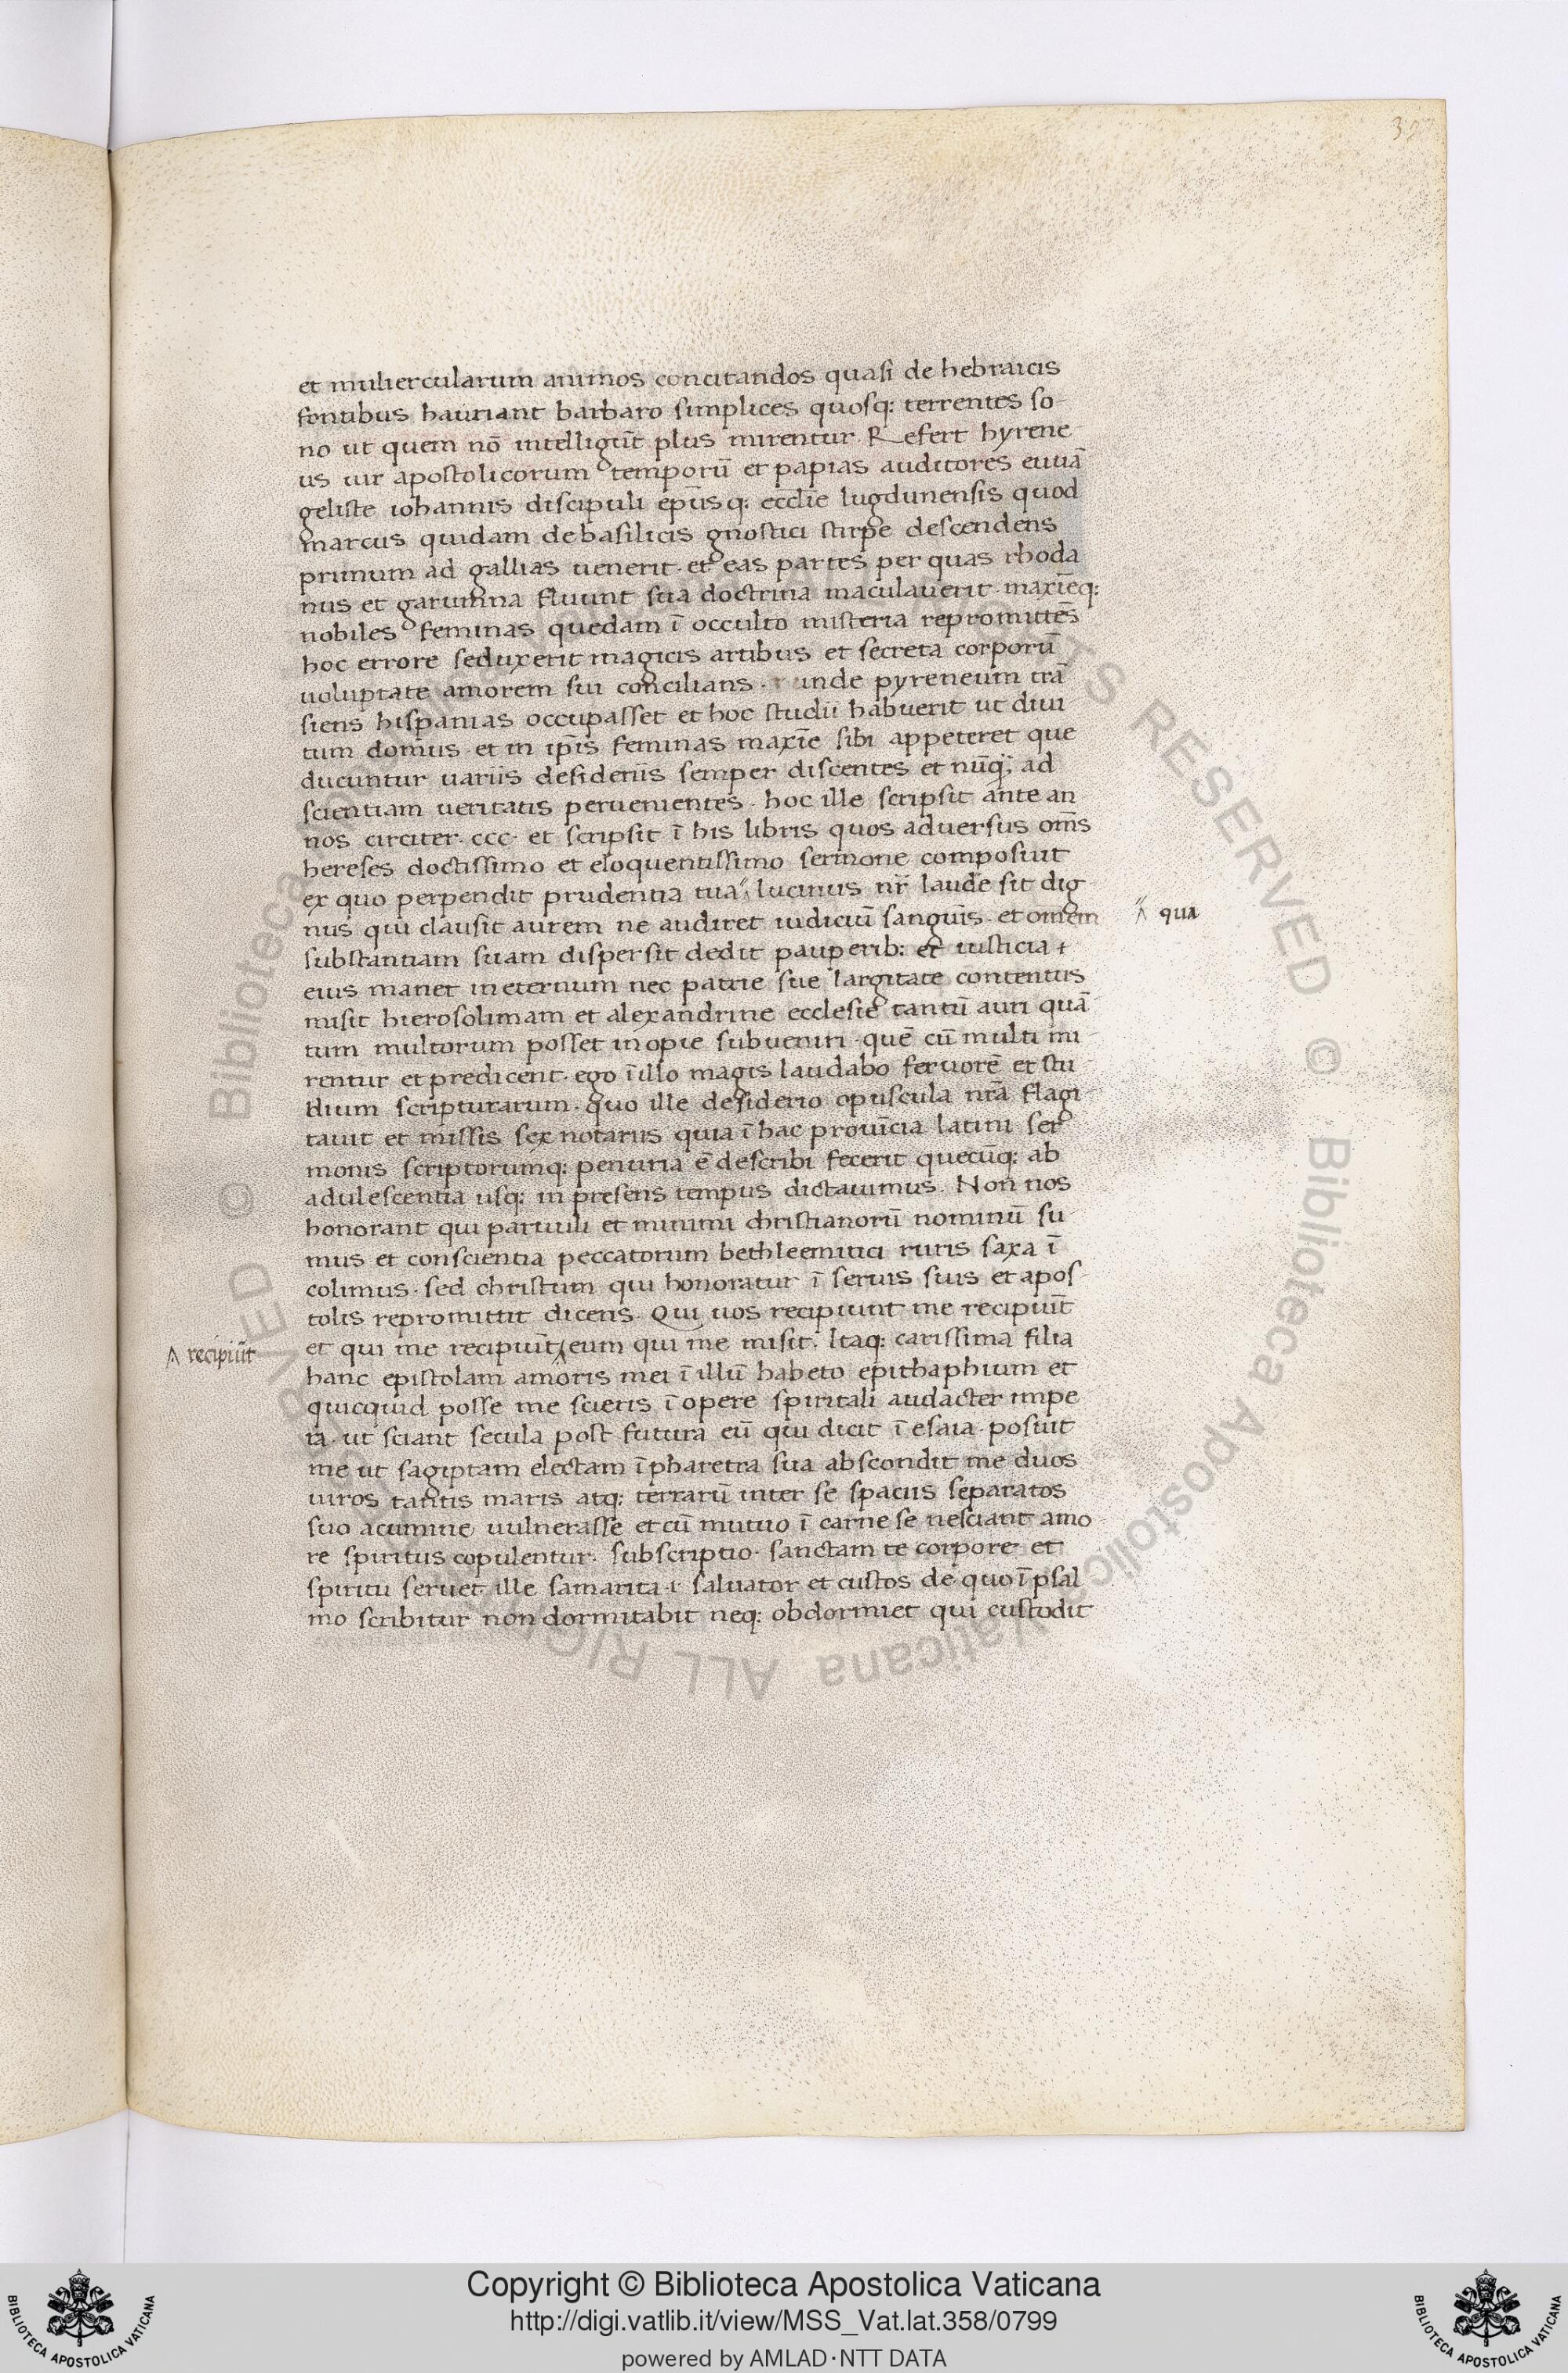 397
et muliercularum animos concitandos quasi de hebraicis
fontibus hauriant barbaro simplices quosq: terrentes so-
no ut quem nō intelligūt plus mirentur. Refert hyrene
us uir apostolicorum temporū et papias auditores euuā
geliste iohannis discipuli ep̄usq: eccl̄ie lugdunensis quod
marcus quidam de basilicis gnostici stirpe descendens
primum ad gallias uenerit. et eas partes per quas rhoda
nus et garumna fluunt sua doctrina maculauerit. maxīeq:
nobiles feminas quedam ī occulto misteria repromittēs
hoc errore seduxerit magicis artibus et secreta corporū
uoluptate amorem sui concilians. unde pyreneum trā
siens hispanias occupasset et hoc studii habuerit ut diui
tum domus. et in ip̄is feminas maxīe sibi appeteret que
ducuntur uariis desideriis semper discentes et nūq; ad
scientiam ueritatis peruenientes. hoc ille scripsit ante an
nos circiter. ccc. et scripsit ī his libris quos aduersus om̄s
hereses doctissimo et eloquentissimo sermone composuit
ex quo perpendit prudentia tua lucinus nr̄ laude sit dig
nus qui clausit aurem ne audiret iudiciū sanguīs. et omēm
⁁ qua
substantiam suam dispersit dedit pauperib: et iusticia +
eius manet in eternum nec patrie sue largitate contentus
misit hierosolimam et alexandrine ecclesie tantū auri quā-
tum multorum posset inopie subueniri. quē cū multi mi-
rentur et predicent. ego ī illo magis laudabo feruorē et stu-
dium scripturarum. quo ille desiderio opuscula nr̄a flagi-
tauit et missis sex notariis quia ī hac prouīcia latini ser
monis scriptorumq: penuria ē describi fecerit quecūq: ab
adulescentia usq: in presens tempus dictauimus. Non nos
honorant qui paruuli et minimi christianorū nominū su-
mus et conscientia peccatorum bethleemitici ruris saxa ī
colimus. sed christum qui honoratur ī seruis suis et apos-
tolis repromittit dicens. Qui uos recipiunt me recipiūt
et qui me recipiūt ⁁ eum qui me misit. Itaq: carissima filia
⁁ recipiūt
hanc epistolam amoris mei ī illū habeto epithaphium et
quicquid posse me scieris ī opere spiritali audacter impe
ra. ut sciant secula post futura eū qui dicit ī esaia. posuit
me ut sagiptam electam ī pharetra sua abscondit me duos
uiros tantis maris atq: terrarū inter se spaciis separatos
suo acumine uulnerasse et cū mutuo ī carne se nesciant amo-
re spiritus copulentur. subscriptio. sanctam te corpore et
spiritu seruet ille samarita. i. saluator et custos de quo ī psal
mo scribitur non dormitabit neq: obdormiet qui custodit
© Biblioteca Apostolica Vaticana ALL RIGHTS RESERVED © Biblioteca Apostolica Vaticana ALL RIGHTS RESERVED
Copyright © Biblioteca Apostolica Vaticana
http://digi.vatlib.it/view/MSS_Vat.lat.358/0799
powered by AMLAD·NTT DATA
BIBLIOTECA APOSTOLICA VATICANA
BIBLIOTECA APOSTOLICA VATICANA